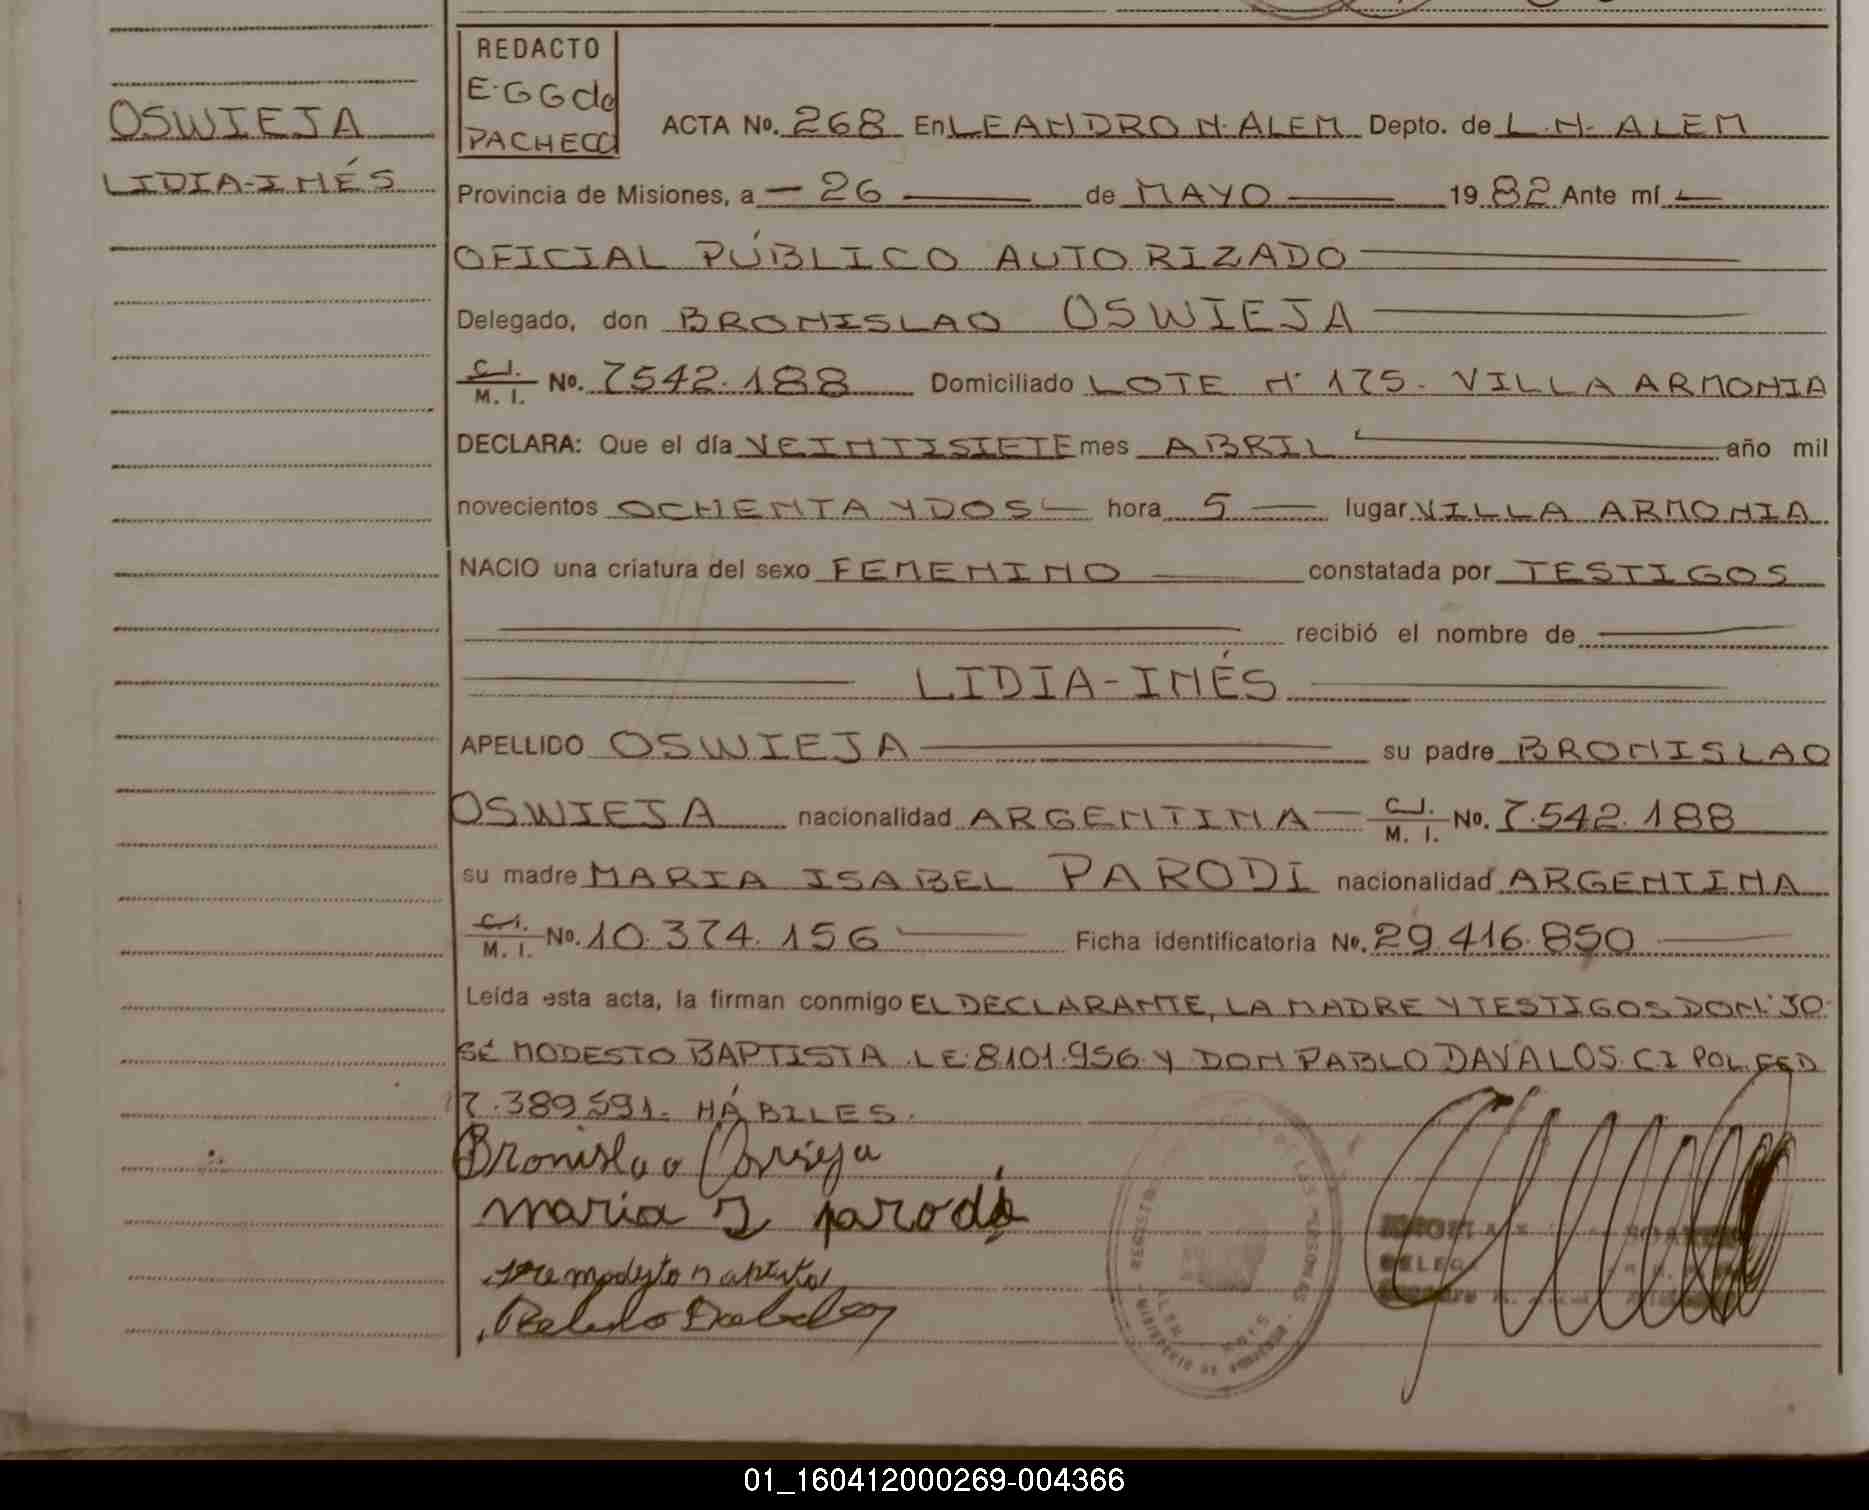 OSWIEJA
LIDIA-INÉS
REDACTO
E.G G de
PACHECO
ACTA No. 268 En LEANDRO N. ALEM Depto. de L. N. ALEM
Provincia de Misiones, a — 26 — de MAYO — 1982 Ante mí —
OFICIAL PÚBLICO AUTORIZADO
Delegado, don BRONISLAO OSWIEJA
C.I. M. I. No. 7542.188 Domiciliado LOTE Nº 175. VILLA ARMONIA
DECLARA: Que el día VEINTISIETE mes ABRIL año mil
novecientos OCHENTA Y DOS — hora 5 — lugar VILLA ARMONIA
NACIO una criatura del sexo FEMENINO constatada por TESTIGOS
recibió el nombre de
LIDIA-INÉS
APELLIDO OSWIEJA su padre BRONISLAO
OSWIEJA nacionalidad ARGENTINA — C.I. M. I. No. 7.542.188
su madre MARIA ISABEL PARODI nacionalidad ARGENTINA
C.I. M. I. No. 10.374.156 Ficha identificatoria No. 29.416.850
Leída esta acta, la firman conmigo EL DECLARANTE, LA MADRE Y TESTIGOS DON: JO-
SÉ MODESTO BAPTISTA L E: 8101.956 Y DON PABLO DAVALOS. C I POL. FED
7.389.591. HÁBILES.
Bronislao Oswieja
maria I parodi
Jose modesto baptista
REGISTRO DE LAS PERSONAS
MINISTERIO DE GOBIERNO
ALEM MNES
DELEG
01_160412000269-004366